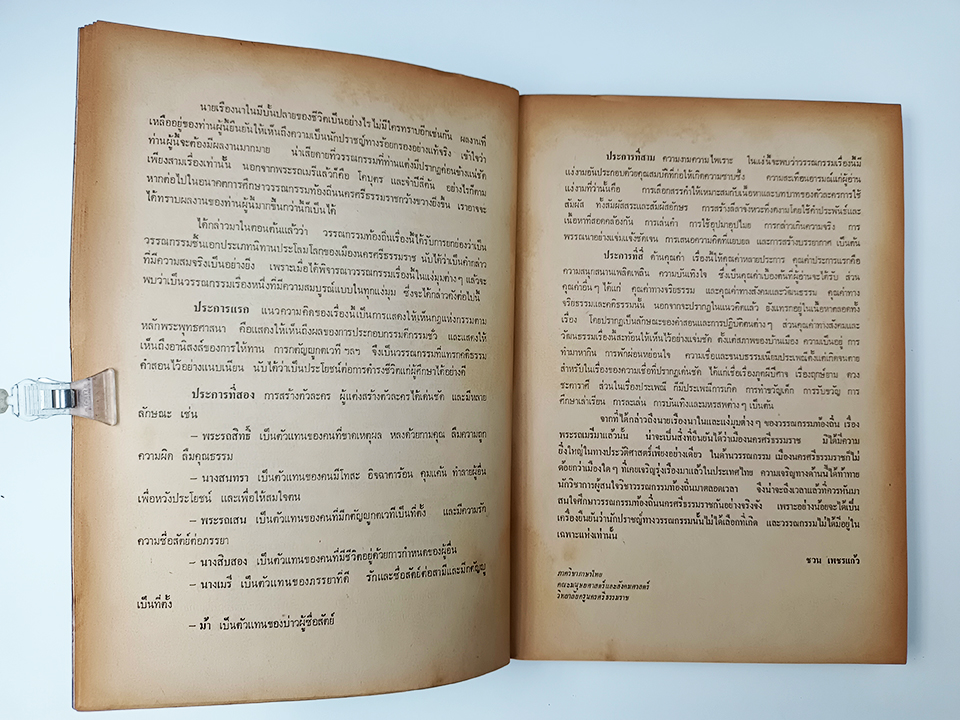 นายเรืองนาในมีบั้นปลายของชีวิตเป็นอย่างไรไม่มีใครทราบอีกเช่นกัน ผลงานที่
เหลืออยู่ของท่านผู้นี้ยืนยันให้เห็นถึงความเป็นนักปราชญ์ทางร้อยกรองอย่างแท้จริง เข้าใจว่า
ท่านผู้นี้จะต้องมีผลงานมากมาย น่าเสียดายที่วรรณกรรมที่ท่านแต่งมีปรากฏค่อนข้างแน่ชัด
เพียงสามเรื่องเท่านั้น นอกจากพระรถเมรีแล้วก็คือ โคบุตร และจำปีสี่ต้น อย่างไรก็ตาม
หากต่อไปในอนาคตการศึกษาวรรณกรรมท้องถิ่นนครศรีธรรมราชกว้างขวางยิ่งขึ้น เราอาจจะ
ได้ทราบผลงานของท่านผู้นี้มากขึ้นกว่านี้ก็เป็นได้
ได้กล่าวมาในตอนต้นแล้วว่า วรรณกรรมท้องถิ่นเรื่องนี้ได้รับการยกย่องว่าเป็น
วรรณกรรมชิ้นเอกประเภทนิทานประโลมโลกของเมืองนครศรีธรรมราช นับได้ว่าเป็นคำกล่าว
ที่มีความสมจริงเป็นอย่างยิ่ง เพราะเมื่อได้พิจารณาวรรณกรรมเรื่องนี้ในแง่มุมต่างๆ แล้วจะ
พบว่าเป็นวรรณกรรมเรื่องหนึ่งที่มีความสมบูรณ์แบบในทุกแง่มุม ซึ่งจะได้กล่าวดังต่อไปนี้
ประการแรก แนวความคิดของเรื่องนี้เป็นการแสดงให้เห็นกฎแห่งกรรมตาม
หลักพระพุทธศาสนา คือแสดงให้เห็นถึงผลของการประกอบกรรมดีกรรมชั่ว และแสดงให้
เห็นถึงอานิสงส์ของการให้ทาน การกตัญญูกตเวที ฯลฯ จึงเป็นวรรณกรรมที่แทรกคติธรรม
คำสอนไว้อย่างแนบเนียน นับได้ว่าเป็นประโยชน์ต่อการดำรงชีวิตแก่ผู้ศึกษาได้อย่างดี
ประการที่สอง การสร้างตัวละคร ผู้แต่งสร้างตัวละครได้เด่นชัด และมีหลาย
ลักษณะ เช่น
– พระรถสิทธิ์ เป็นตัวแทนของคนที่ขาดเหตุผล หลงด้วยกามคุณ ลืมความถูก
ความผิด ลืมคุณธรรม
– นางสนทรา เป็นตัวแทนของคนมีโทสะ อิจฉาตาร้อน คุมแค้น ทำลายผู้อื่น
เพื่อหวังประโยชน์ และเพื่อให้สมใจตน
– พระรถเสน เป็นตัวแทนของคนที่มีกตัญญูกตเวทีเป็นที่ตั้ง และมีความรัก
ความซื่อสัตย์ต่อภรรยา
– นางสิบสอง เป็นตัวแทนของคนที่มีชีวิตอยู่ด้วยการกำหนดของผู้อื่น
– นางเมรี เป็นตัวแทนของภรรยาที่ดี รักและซื่อสัตย์ต่อสามีและมีกตัญญู
เป็นที่ตั้ง
– ม้า เป็นตัวแทนของบ่าวผู้ซื่อสัตย์
ประการที่สาม ความงามความไพเราะ ในแง่นี้จะพบว่าวรรณกรรมเรื่องนี้มี
แง่งามอันประกอบด้วยคุณสมบัติที่ก่อให้เกิดความซาบซึ้ง ความสะเทือนอารมณ์แก่ผู้อ่าน
แง่งามที่ว่านี้คือ การเลือกสรรคำให้เหมาะสมกับเนื้อหาและบทบาทของตัวละครการใช้
สัมผัส ทั้งสัมผัสสระและสัมผัสอักษร การสร้างลีลาจังหวะที่งดงามโดยใช้คำประพันธ์และ
เนื้อหาที่สอดคล้องกัน การเล่นคำ การใช้อุปมาอุปไมย การกล่าวเกินความจริง การ
พรรณนาอย่างแจ่มแจ้งชัดเจน การเสนอความคิดที่แยบยล และการสร้างบรรยากาศ เป็นต้น
ประการที่สี่ ด้านคุณค่า เรื่องนี้ให้คุณค่าหลายประการ คุณค่าประการแรกคือ
ความสนุกสนานเพลิดเพลิน ความบันเทิงใจ ซึ่งเป็นคุณค่าเบื้องต้นที่ผู้อ่านจะได้รับ ส่วน
คุณค่าอื่นๆ ได้แก่ คุณค่าทางจริยธรรม และคุณค่าทางสังคมและวัฒนธรรม คุณค่าทาง
จริยธรรมและคติธรรมนั้น นอกจากจะปรากฏในแนวคิดแล้ว ยังแทรกอยู่ในเนื้อหาตลอดทั้ง
เรื่อง โดยปรากฏเป็นลักษณะของคำสอนและการปฏิบัติตนต่างๆ ส่วนคุณค่าทางสังคมและ
วัฒนธรรมเรื่องนี้สะท้อนให้เห็นไว้อย่างแจ่มชัด ตั้งแต่สภาพของบ้านเมือง ความเป็นอยู่ การ
ทำมาหากิน การพักผ่อนหย่อนใจ ความเชื่อและขนบธรรมเนียมประเพณีตั้งแต่เกิดจนตาย
สำหรับในเรื่องของความเชื่อที่ปรากฏเด่นชัด ได้แก่เชื่อเรื่องภูตผีปีศาจ เรื่องฤกษ์ยาม ดวง
ชะตาราศี ส่วนในเรื่องประเพณี ก็มีประเพณีการเกิด การทำขวัญเด็ก การรับขวัญ การ
ศึกษาเล่าเรียน การละเล่น การบันเทิงและมหรสพต่างๆ เป็นต้น
จากที่ได้กล่าวถึงนายเรืองนาในและแง่มุมต่างๆ ของวรรณกรรมท้องถิ่น เรื่อง
พระรถเมรีมาแล้วนั้น น่าจะเป็นสิ่งที่ยืนยันได้ว่าเมืองนครศรีธรรมราช มิได้มีความ
ยิ่งใหญ่ในทางประวัติศาสตร์เพียงอย่างเดียว ในด้านวรรณกรรม เมืองนครศรีธรรมราชก็ไม่
ด้อยกว่าเมืองใดๆ ที่เคยเจริญรุ่งเรืองมาแล้วในประเทศไทย ความเจริญทางด้านนี้ได้ท้าทาย
นักวิชาการผู้สนใจวิชาวรรณกรรมท้องถิ่นมาตลอดเวลา จึงน่าจะถึงเวลาแล้วที่ควรหันมา
สนใจศึกษาวรรณกรรมท้องถิ่นนครศรีธรรมราชกันอย่างจริงจัง เพราะอย่างน้อยจะได้เป็น
เครื่องยืนยันว่านักปราชญ์ทางวรรณกรรมนั้นไม่ได้เลือกที่เกิด และวรรณกรรมไม่ได้มีอยู่ใน
เฉพาะแห่งเท่านั้น
ชวน เพชรแก้ว
ภาควิชาภาษาไทย
คณะมนุษยศาสตร์และสังคมศาสตร์
วิทยาลัยครูนครศรีธรรมราช